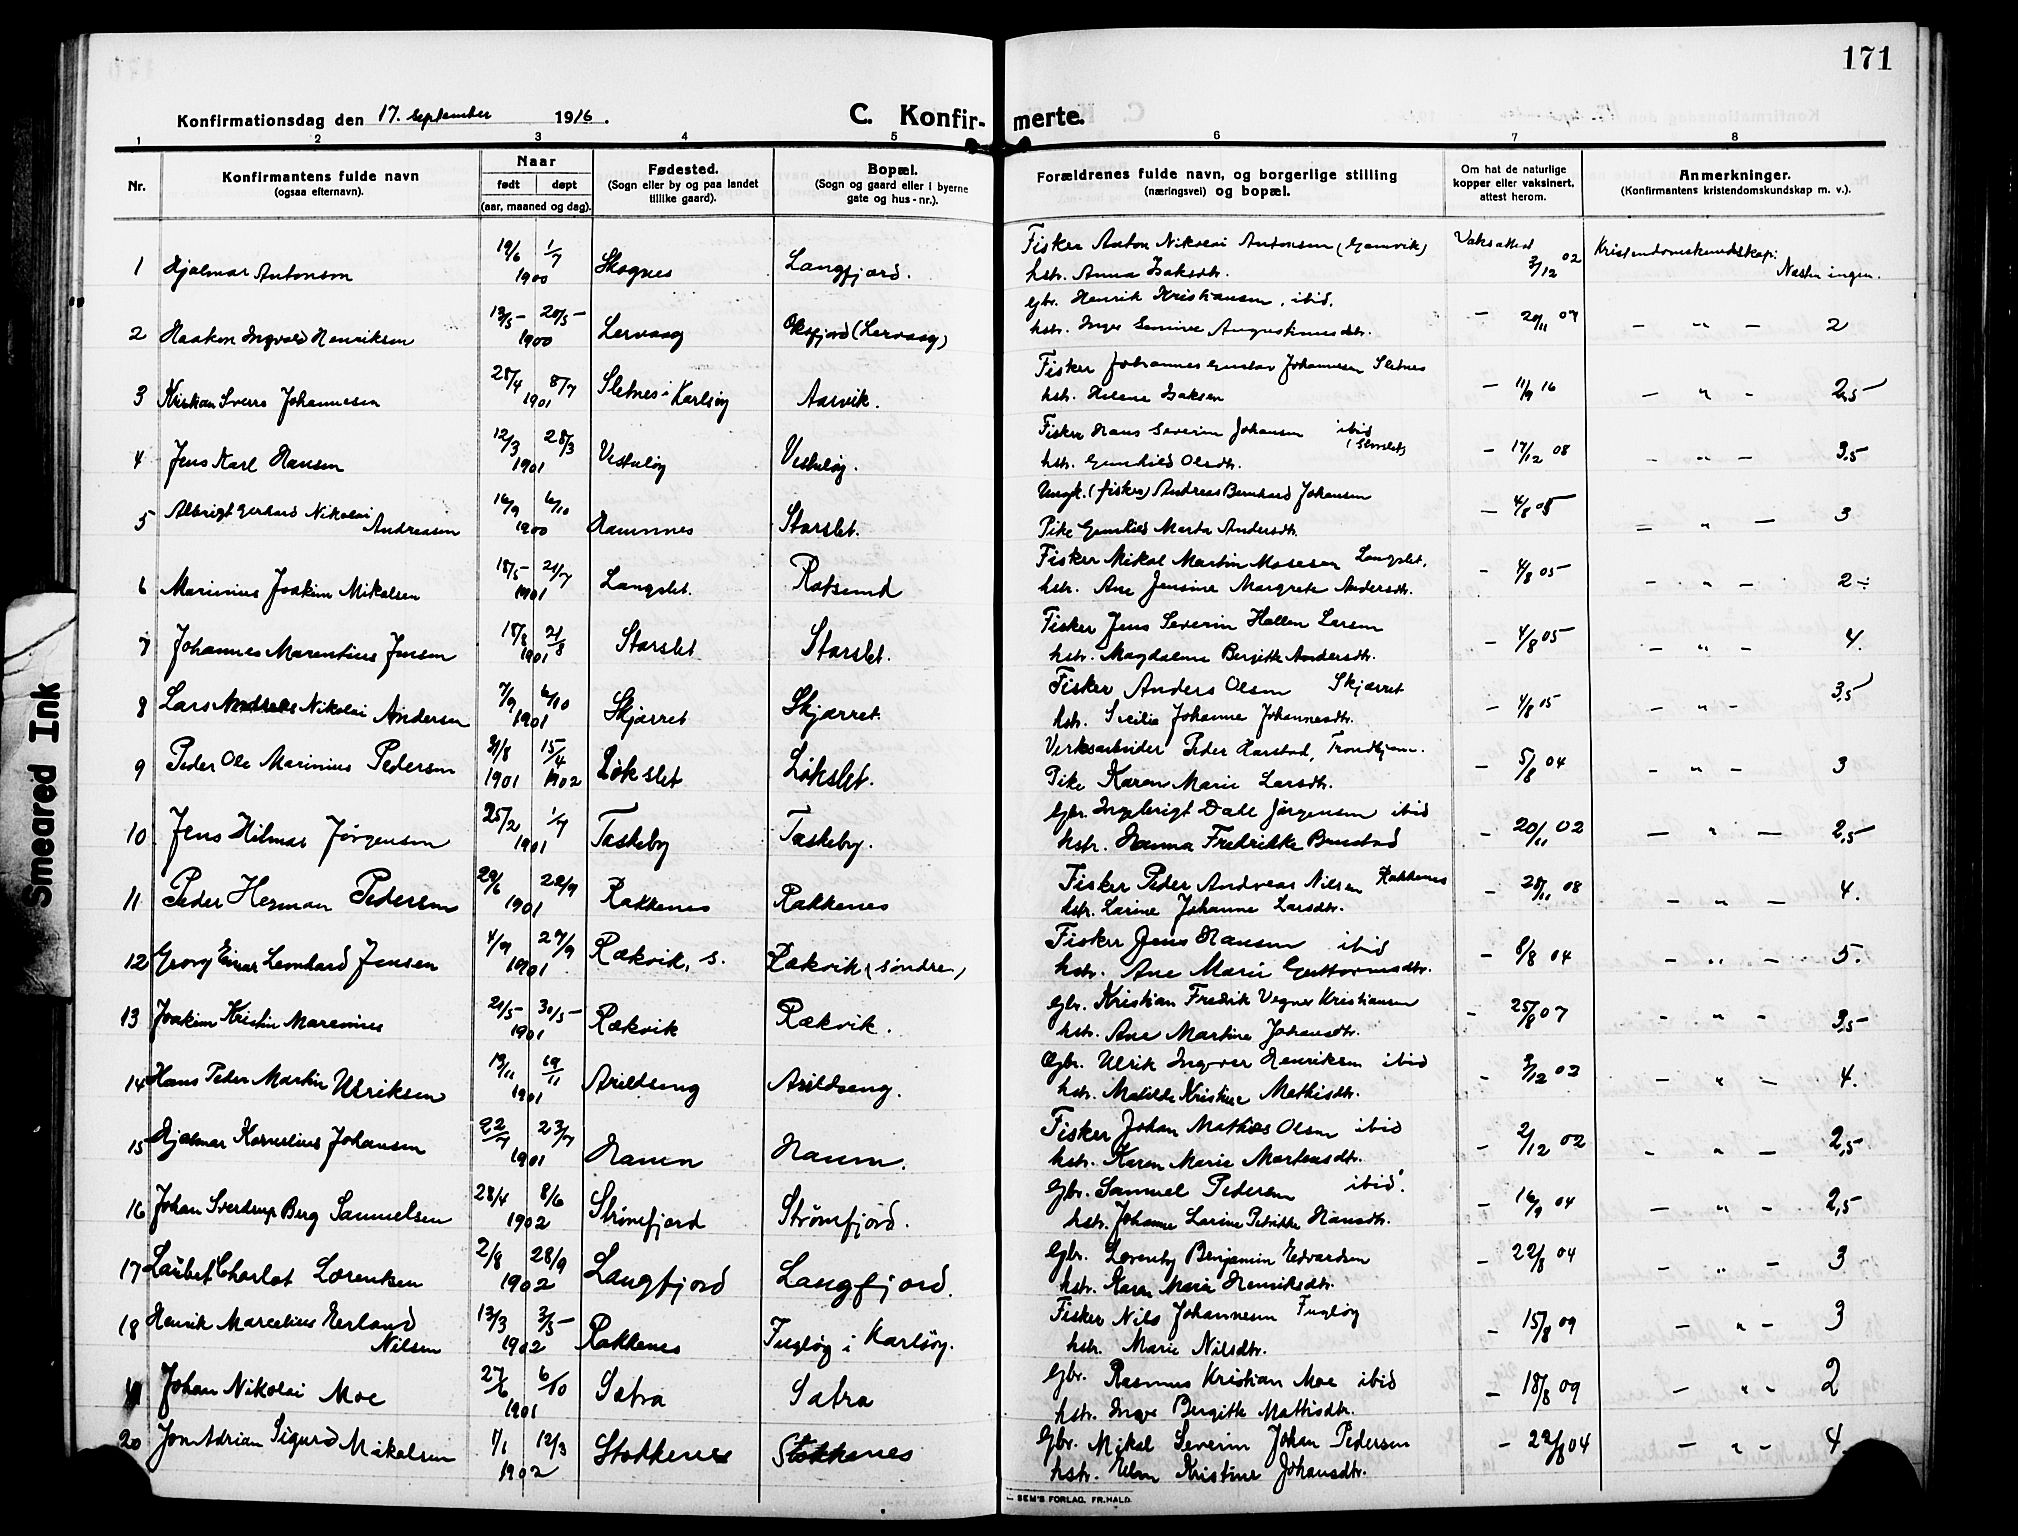 171
Konfirmationsdag den 17. september 1916.
C. Konfirmerte.
1 2 3 4 5 6 7 8
Nr.
Konfirmantens fulde navn
(ogsaa efternavn).
Naar
født døpt
(aar, maaned og dag).
Fødested.
(Sogn eller by og paa landet
tillike gaard).
Bopæl.
(Sogn og gaard eller i byerne
gate og hus-nr.).
Forældrenes fulde navn, og borgerlige stilling
(næringsvei) og bopæl.
Om hat de naturlige
kopper eller vaksinert,
attest herom.
Anmerkninger.
(Konfirmantens kristendomskundskap m. v.).
Fisker Anton Nikolai Antonsen (Gamvik)
1 Hjalmar Antonsen 19/6 1/7 1900 Skognes Langfjord. hstr. Anna Isaksdtr. Vaksattest 3/12 02 Kristendomskundskap: Næsten ingen.
Gbr. Henrik Kristiansen, ibid.
2 Haakon Ingvald Henriksen 13/5 20/5 1900 Lervaag Oksfjord (Lervaag) hstr. Inger Augustinusdtr. - 20/11 07 - " - 2
Fisker Johannes Gustav Johannesen Sletnes
3 Kristian Sverre Johannesen 28/4 8/7 1901 Sletnes i Karlsøy Aarvik. hstr. Helene Isaksen - 11/9 16 - " - 2,5
Fisker Hans Severin Johansen ibid
4 Jens Karl Hansen 12/3 28/3 1901 hstr. Gunhild Olsdtr. - 17/12 08 - " - 3,5
Ungk. (fisker) Andreas Bernhard Johansen
5 Albrigt Gerhard Nikolai Andreasen 16/9 6/10 1900 Hamnnes Storslet. Pike Gunhild Marta Andersdtr. - 4/8 05 - " - 3
Fisker Mikal Martin Mosesen Langslet.
6 Marinius Joakim Mikalsen 18/5 21/7 1901 Langslet. Rotsund hstr. Ane Jensine Margrete Andersdtr. - 4/8 05 - " - 2 ÷
Fisker Jens Severin Hallen Larsen
7 Johannes Marentius Jensen 18/8 21/8 1901 Storslet Storslet. hstr. Magdalena Bergitte Andersdtr. - 4/8 05 - " - 4.
Fisker Anders Olsen Skjærret
8 Lars Andreas Nikolai Andersen 7/9 6/10 1901 Skjærret Skjærret. hstr. Johanne Johannesdtr. - 4/8 05 - " - 3,5
Verksarbeider Peder Harstad, Trondhjem.
9 Peder Ole Marinius Pedersen 31/8 1901 15/4 1902 Løkslet Løkslet. Pike Karen Marie Larsdtr. - 5/8 04 - " - 3
Gbr. Ingebrigt Dahl Jørgensen ibid
10 Jens Hilmar Jørgensen 25/2 1/7 1901 Taskeby Taskeby. hstr. Hanna Fredrikke - 20/11 02 - " - 2,5
Fisker Peder Andreas Nilsen Rakkenes
11 Peder Herman Pedersen 29/6 1901 Rakkenes Rakkenes hstr. Larine Johanne Larsdtr. - 28/11 08 - " - 4.
Fisker Jens Hansen ibid
12 Georg Einar Leonhard Jensen 4/9 27/9 1901 Rækvik, s. Rækvik (søndre) hstr. Ane Marie Guttormsdtr. - 8/8 04 - " - 5.
Gbr. Kristian Fredrik Vegner Kristiansen
13 Joakim Kristin Marenius 21/5 30/5 1901 Rækvik Rækvik. hstr. Ane Martine Johansdtr. - 25/8 07 - " - 3,5
Gbr. Ulrik Ingvar Henriksen ibid
14 Hans Peder Martin Ulriksen 13/11 19/11 1901 Arildseng Arildseng. hstr. Matilde Kristine Mathisdtr. - 3/12 02 - " - 4.
Fisker Johan Mathias Olsen ibid
15 Hjalmar Kornelius Johansen 22/7 23/7 1901 Havnn Havnn. hstr. Karen Marie Mortensdtr. - 2/12 02 - " - 2,5
Gbr. Samuel Pedersen ibid.
16 Johan Sverdrup Berg Samuelsen 28/4 8/6 1902 Strømfjord Strømfjord. hstr. Johanne Larine Petrikke Hansdtr. - 16/9 04 - " - 2,5
Gbr. Benjamin Edvardsen
17 Charlot Lorentsen 2/8 28/9 1902 Langfjord Langfjord. hstr. Karen Marie Henriksdtr. - 22/8 04 - " - 3
Fisker Nils Johannesen Fugløy
18 Henrik Marcelius Erland Nilsen 13/3 3/5 1902 Rakkenes Fugløy i Karlsøy. hstr. Marie Nilsdtr. - 15/8 09 - " - 3
Gbr. Rasmus Kristian Moe ibid
Johan Nikolai Moe 27/6 6/10 1901 Satra Satra hstr. Inger Bergitte Mattisdtr. - 18/8 09 - " - 2
Gbr. Mikal Severin Johan Pedersen
20 Jon Adrian Sigurd Mikalsen 1/1 12/3 1902 Stokkenes Stokkenes hstr. Ellen Kristine Johansdtr. - 22/8 04 - " - 4
SEM'S FORLAG, FR.HALD.
Smeared Ink